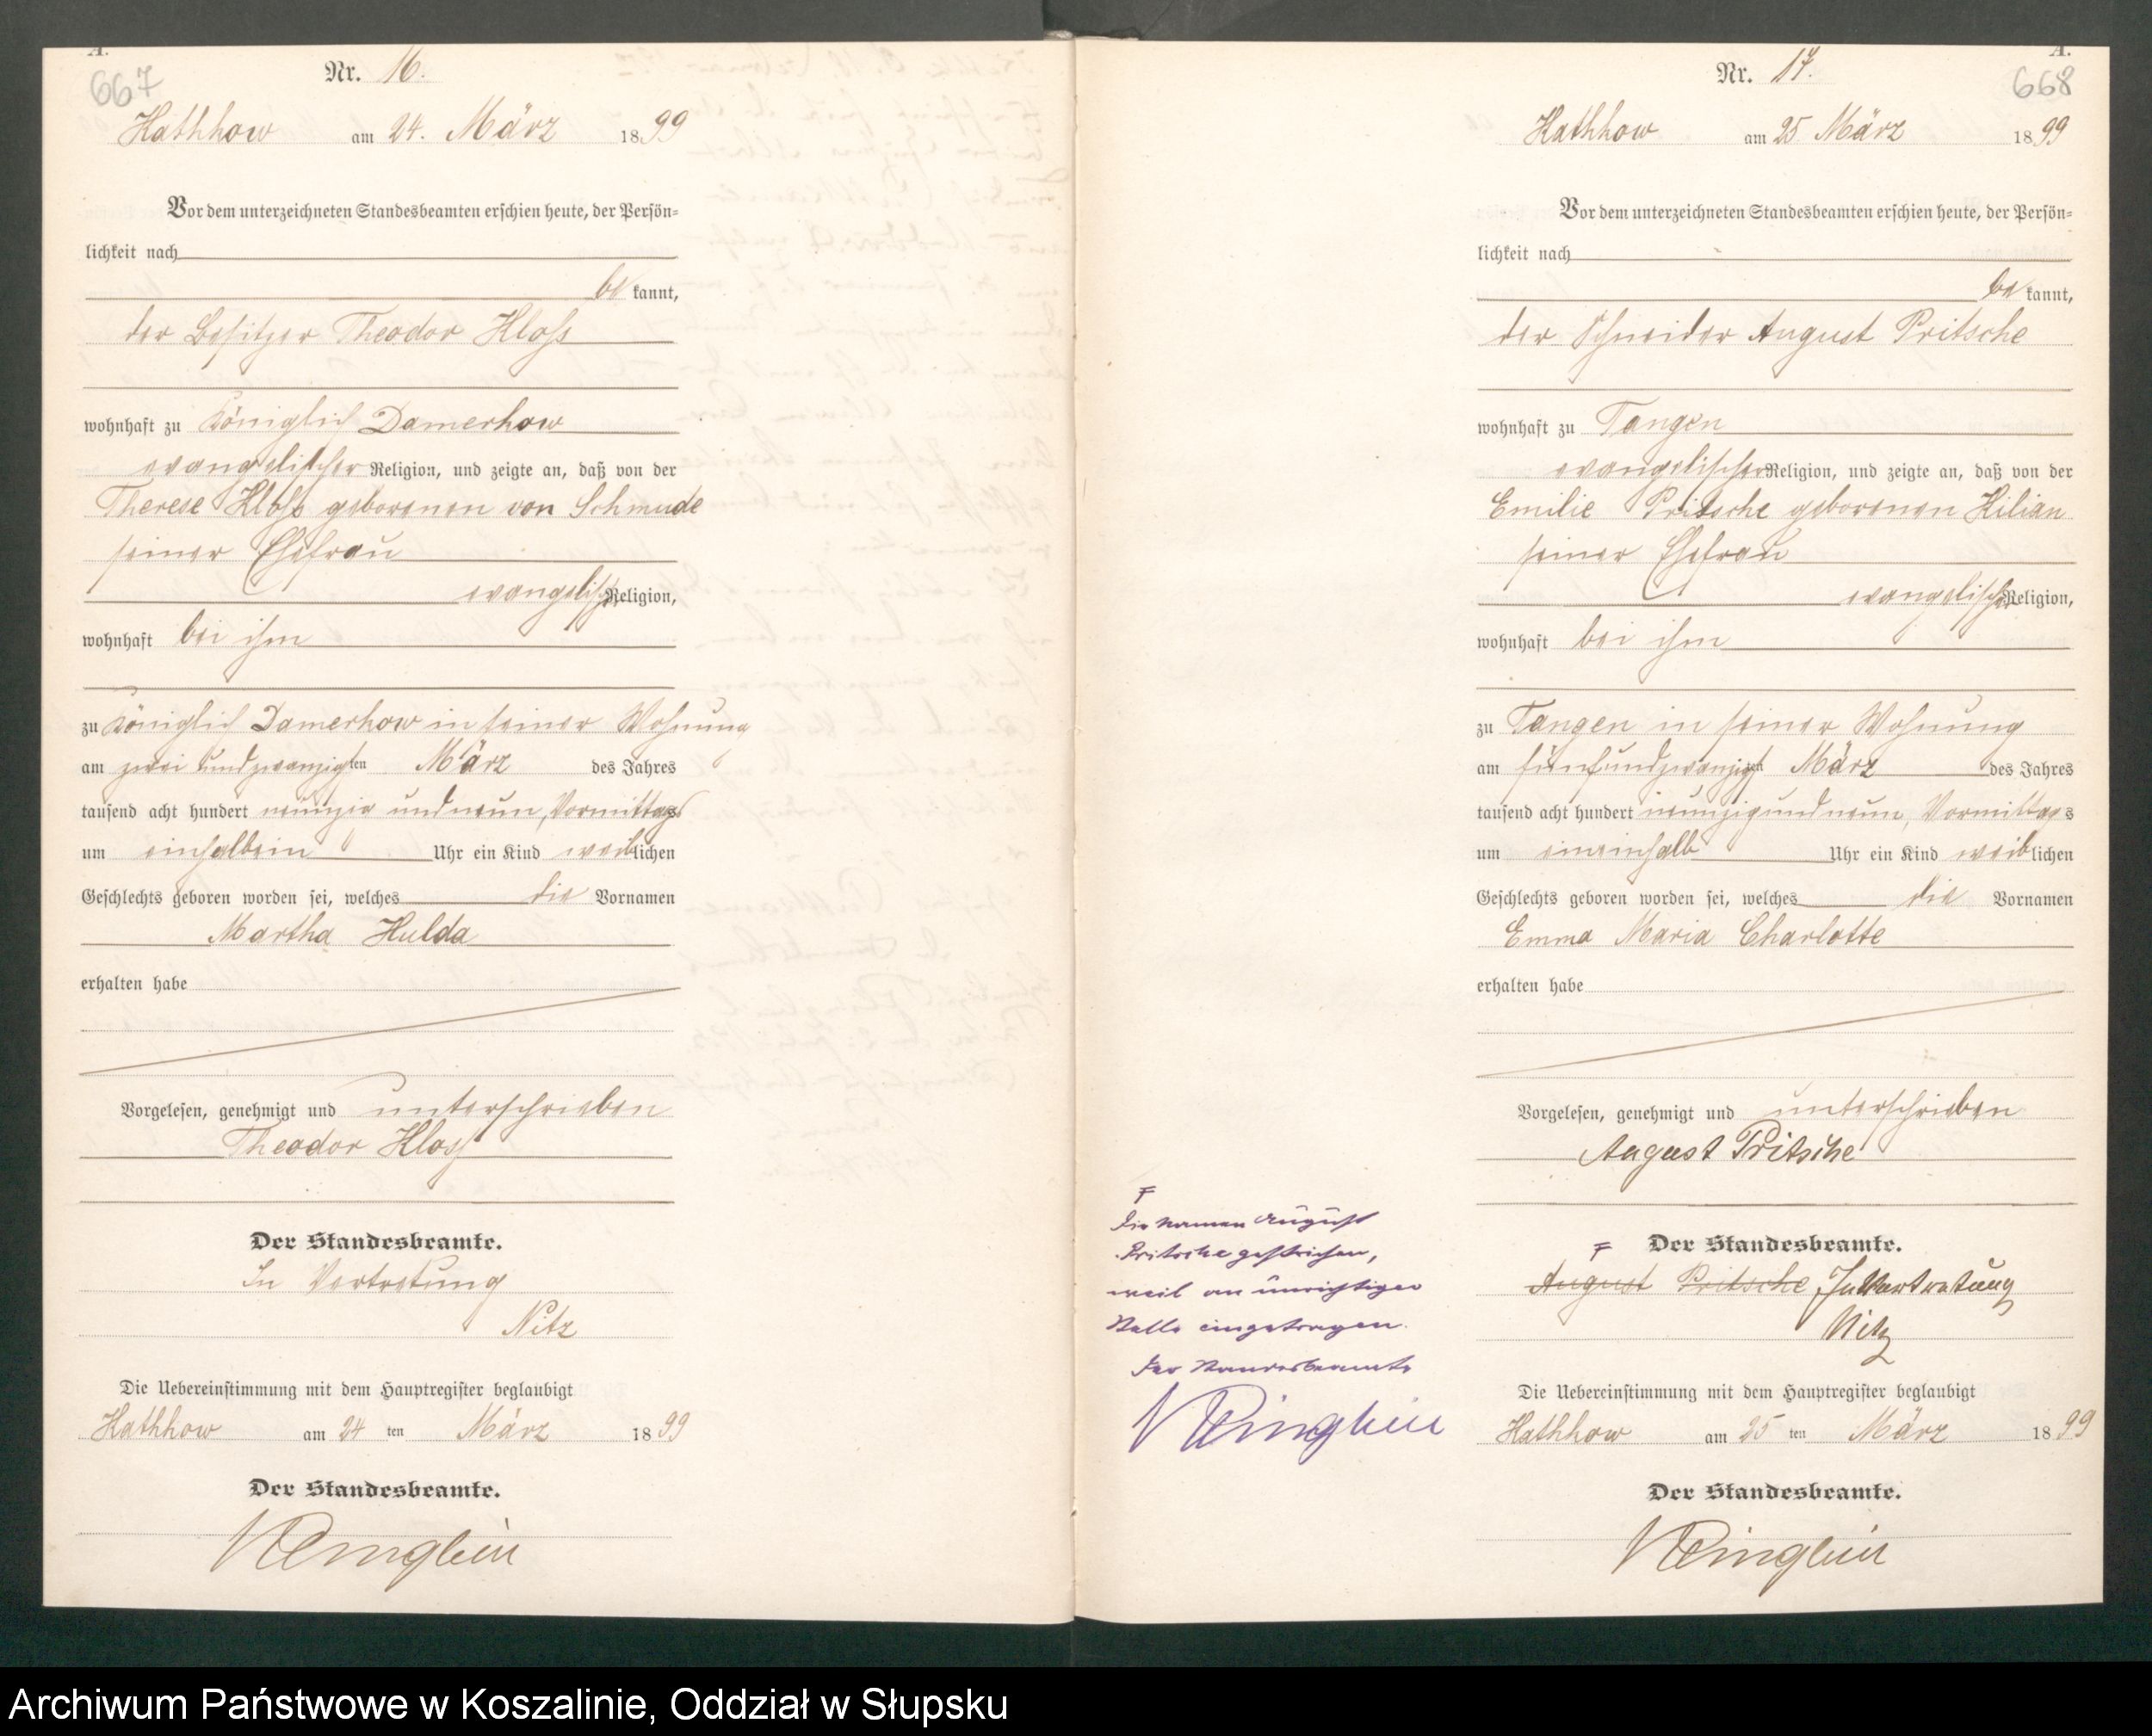 A.
667
Nr. 16.
Kathkow am 24. März 1899
Vor dem unterzeichneten Standesbeamten erschien heute, der Persön-
lichkeit nach
be kannt,
der Besitzer Theodor Kloss
wohnhaft zu Königlich Damerkow
evangelischer Religion, und zeigte an, daß von der
Therese Kloss geborenen von Schmude
seiner Ehefrau
evangelischer Religion,
wohnhaft bei ihm
zu Königlich Damerkow in seiner Wohnung
am zwei undzwanzigten März des Jahres
tausend acht hundert neunzig und neun, Vormittags
um einhalbein Uhr ein Kind weiblichen
Geschlechts geboren worden sei, welches die Vornamen
Martha Hulda
erhalten habe
Vorgelesen, genehmigt und unterschrieben
Theodor Kloss
Der Standesbeamte.
In Vertretung
Nitz
Die Uebereinstimmung mit dem Hauptregister beglaubigt
Kathkow am 24 ten März 1899
Der Standesbeamte.
A.
668
Nr. 17.
Kathkow am 25 März 1899
Vor dem unterzeichneten Standesbeamten erschien heute, der Persön-
lichkeit nach
be kannt,
der Schneider August Pritsche
wohnhaft zu Tangen
evangelischer Religion, und zeigte an, daß von der
Emilie Pritsche geborenen Kilian
seiner Ehefrau
evangelischer Religion,
wohnhaft bei ihm
zu Tangen in seiner Wohnung
am fünfundzwanzigten März des Jahres
tausend acht hundert neunzigundneun, Vormittags
um eineinhalb Uhr ein Kind weiblichen
Geschlechts geboren worden sei, welches die Vornamen
Emma Maria Charlotte
erhalten habe
Vorgelesen, genehmigt und unterschrieben
August Pritsche
Der Standesbeamte.
August Pritsche In Vertretung
Nitz
Die Namen August
Pritsche gestrichen,
weil an unrichtiger
Stelle eingetragen.
Der Standesbeamte
Die Uebereinstimmung mit dem Hauptregister beglaubigt
Kathkow am 25 ten März 1899
Der Standesbeamte.
Archiwum Państwowe w Koszalinie, Oddział w Słupsku